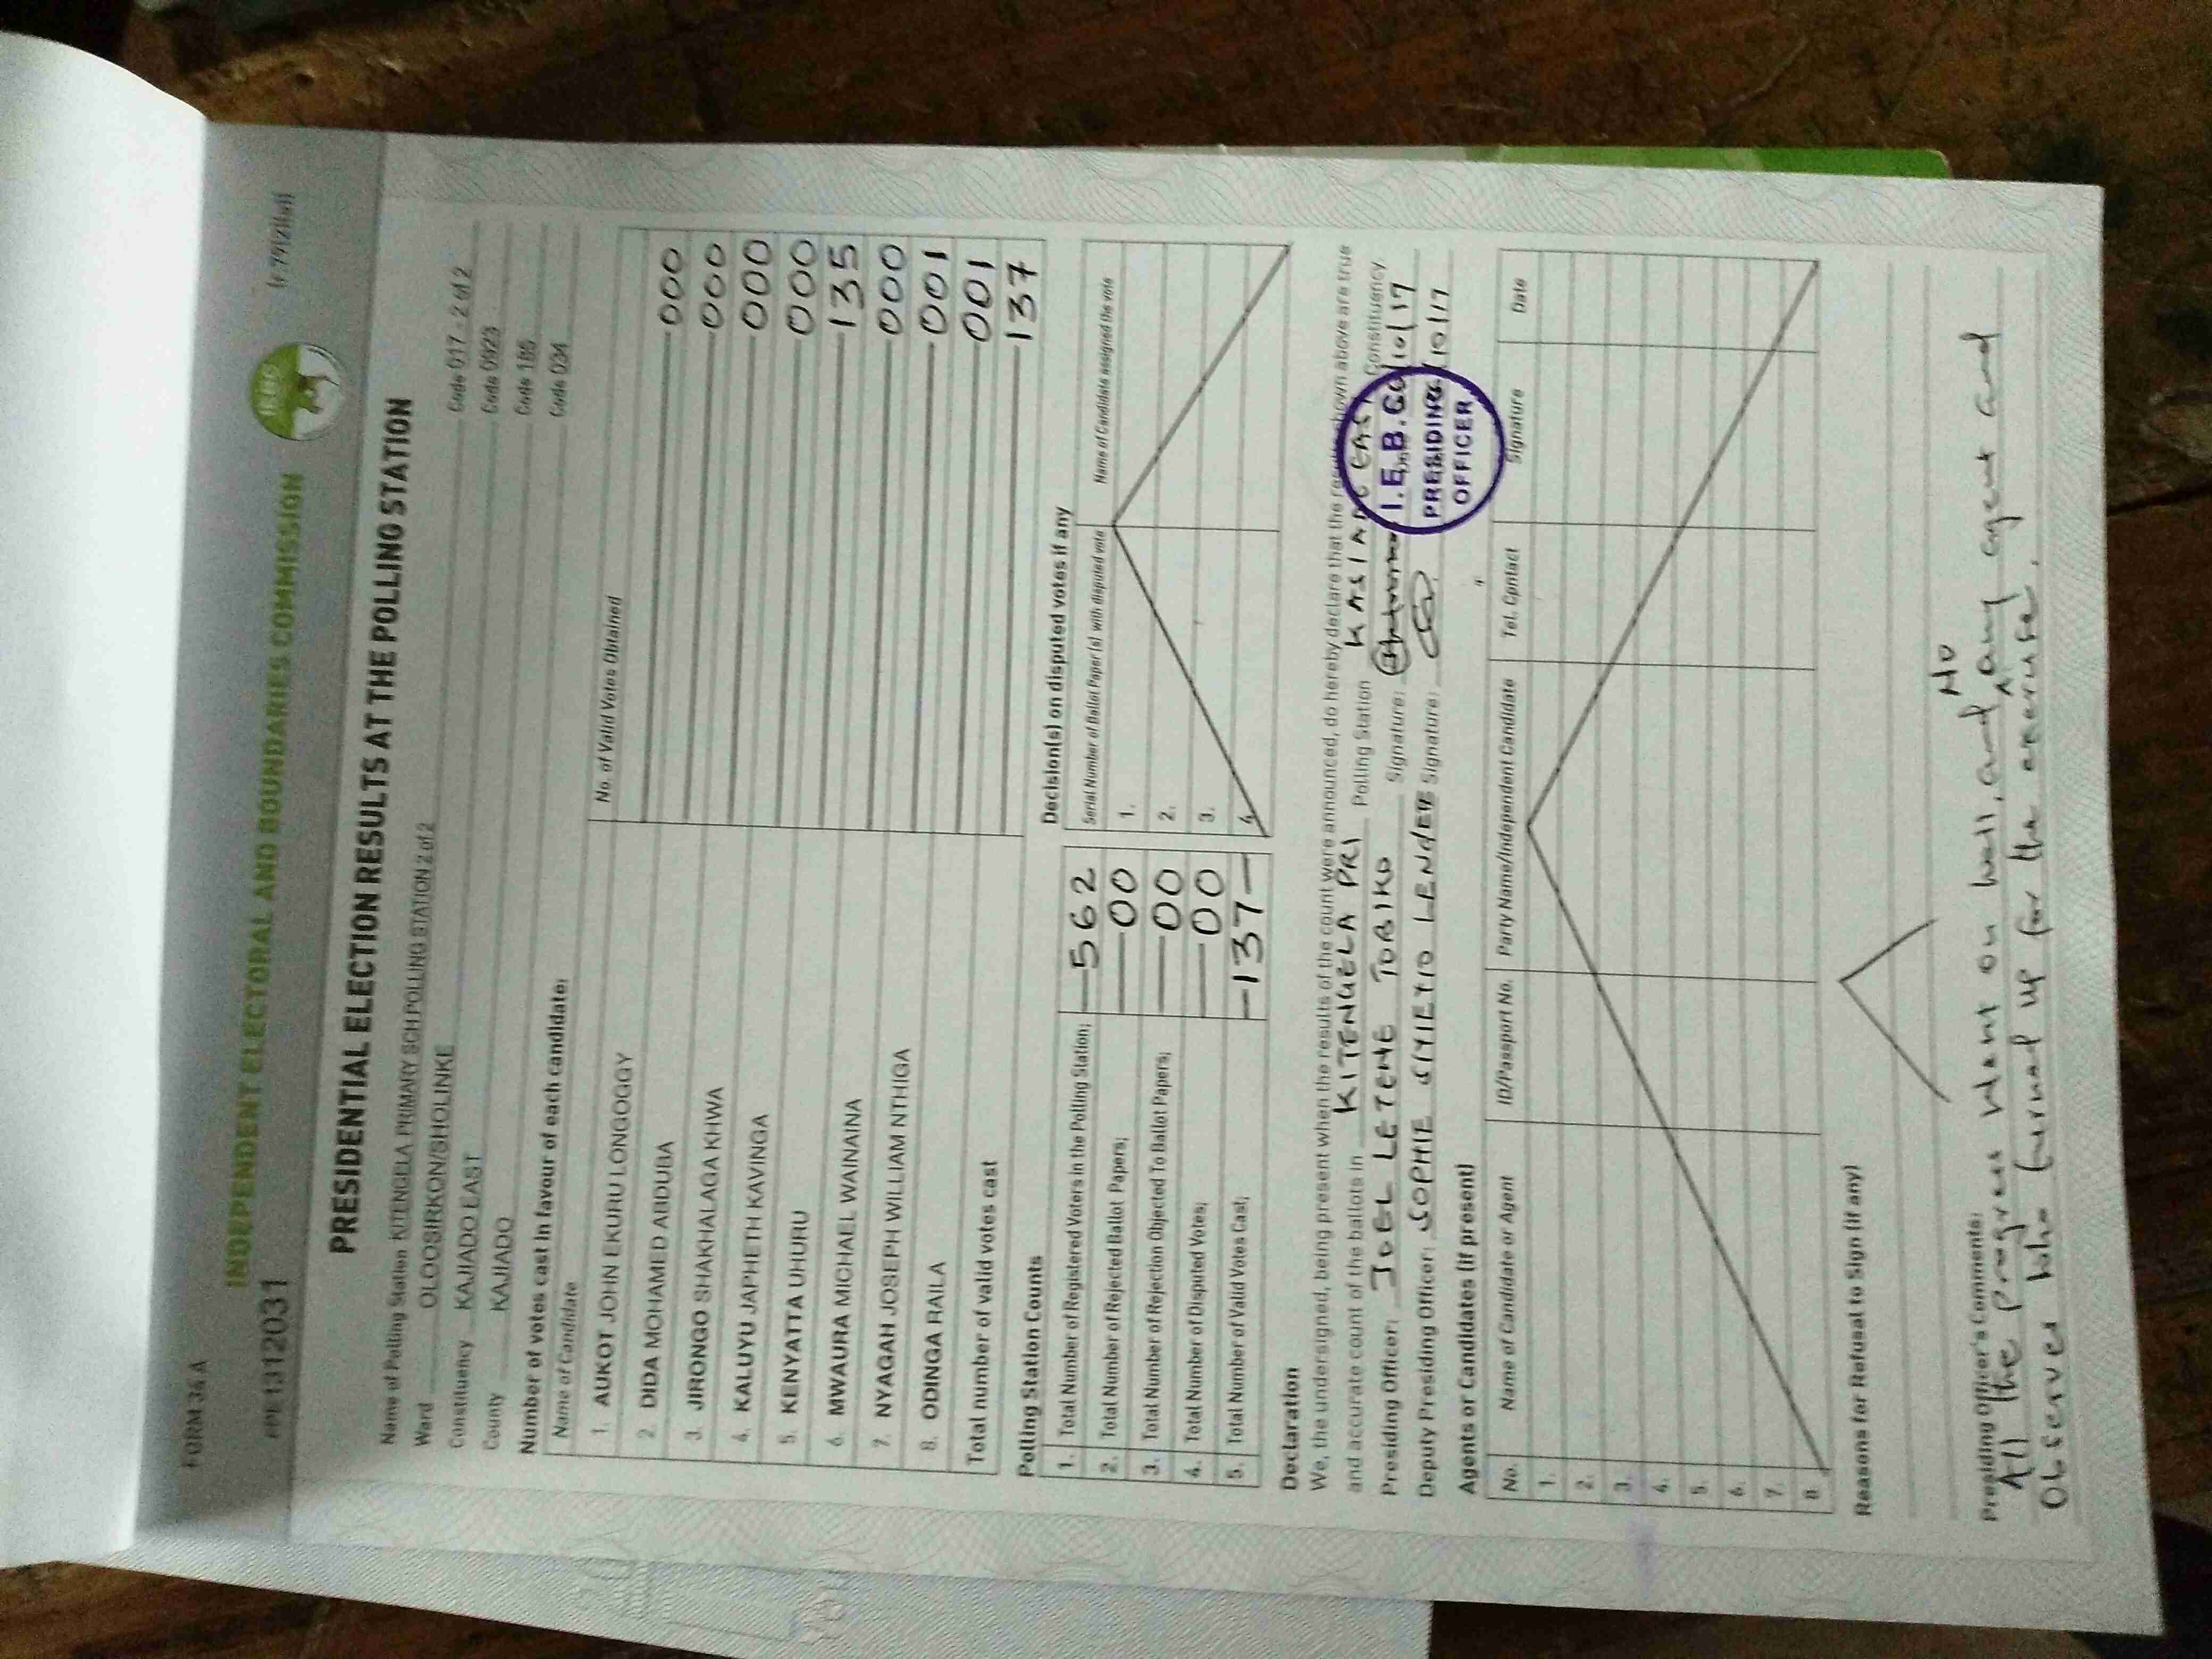 FORM 34 A
(r.79(2)(a))
PPE 1312031
INDEPENDENT ELECTORAL AND BOUNDARIES COMMISSION
IEBC
PRESIDENTIAL ELECTION RESULTS AT THE POLLING STATION
Name of Polling Station KITENGELA PRIMARY SCH POLLING STATION 2 of 2 Code 017 - 2 of 2
Ward OLOOSIRKON/SHOLINKE Code 0923
Constituency KAJIADO EAST Code 185
County KAJIADO Code 034
Number of votes cast in favour of each candidate:
Name of Candidate No. of Valid Votes Obtained
1. AUKOT JOHN EKURU LONGOGGY 000
2. DIDA MOHAMED ABDUBA 000
3. JIRONGO SHAKHALAGA KHWA 000
4. KALUYU JAPHETH KAVINGA 000
5. KENYATTA UHURU 135
6. MWAURA MICHAEL WAINAINA 000
7. NYAGAH JOSEPH WILLIAM NTHIGA 001
8. ODINGA RAILA 001
Total number of valid votes cast 137
Polling Station Counts
1. Total Number of Registered Voters in the Polling Station; 562
2. Total Number of Rejected Ballot Papers; 00
3. Total Number of Rejection Objected To Ballot Papers; 00
4. Total Number of Disputed Votes; 00
5. Total Number of Valid Votes Cast; 137
Decision(s) on disputed votes if any
Serial Number of Ballot Paper (s) with disputed vote Name of Candidate assigned the vote
1.
2.
3.
4.
Declaration
We, the undersigned, being present when the results of the count were announced, do hereby declare that the results shown above are true
and accurate count of the ballots in KITENGELA PRI Polling Station KAJIADO EAST Constituency
Presiding Officer: JOEL LETEME TOBIKO Signature: /10/17
Deputy Presiding Officer: SOPHIE Signature: /10/17
I.E.B.C
PRESIDING
OFFICER
Agents or Candidates (if present)
No. Name of Candidate or Agent ID/Passport No. Party Name/Independent Candidate Tel. Contact Signature Date
1.
2.
3.
4.
5.
6.
7.
8.
Reasons for Refusal to Sign (if any)
Presiding Officer's Comments:
No
All the progress want on well, and any agent and
Observer who turned up for the exercise.